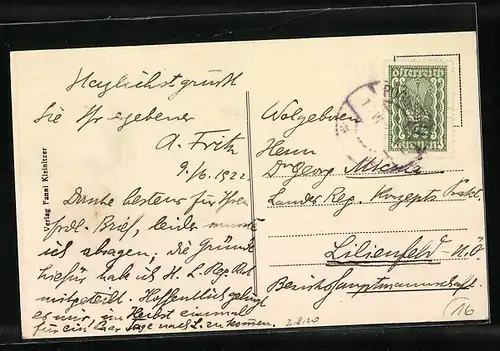 Herzlichst grüsst
Sie Ihr ergebener
A. Fritz
9./6. 1922.
Danke bestens für Ihren
frdl. Brief, leider musste
ich absagen; die Gründe
hiefür hab ich H. L. Reg. Rat
mitgeteilt. Hoffentlich gelingt
es mir, im Herbst einmal
für ein paar Tage nach L. zu kommen.
Verlag Fanni Kleinitzer
Österreich
Wolgeboren
Herrn
Dr Georg
Landes Reg. Konzepts Prakt.
Lilienfeld N.Ö.
Bezirkshauptmannschaft.
2.8.20
16